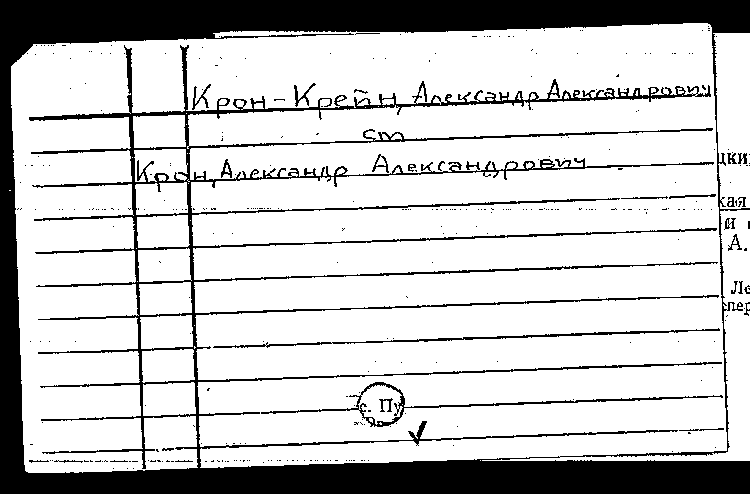 Крон-Крейн, Александр Александрович
см
Крон, Александр Александрович
кая
и
А.
Ле
с. Пу